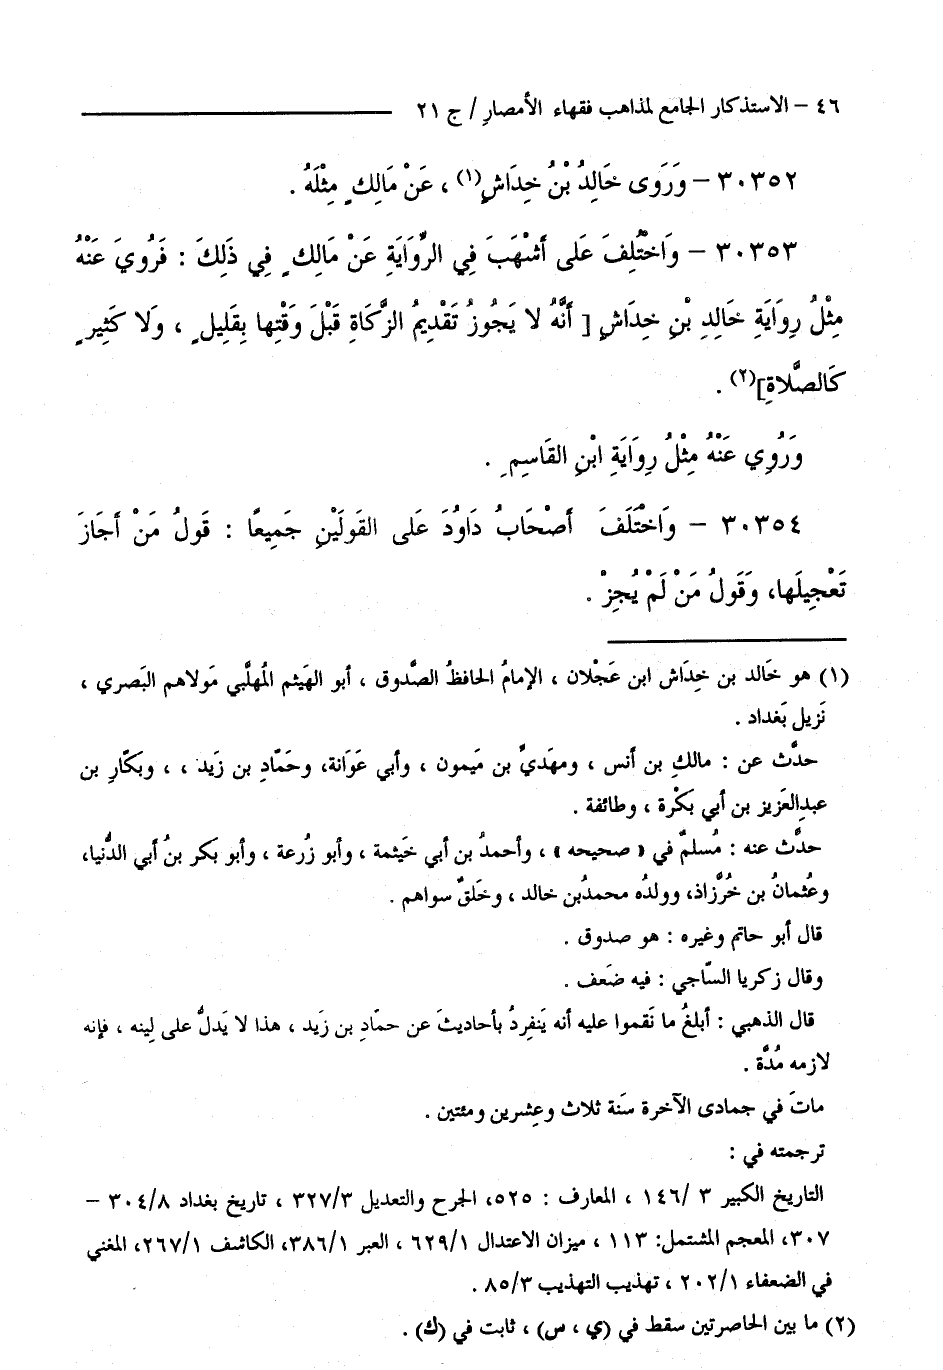 ٤٦ – الاستذكار الجامع لمذاهب فقهاء الأمصارِ / ج ٢١
٣٠٣٥٢ – وَرَوى خَالِدُ بْنُ خِدَاشٍ(١) ، عَنْ مَالِكٍ مِثْلَهُ .
٣٠٣٥٣ – وَاخْتُلِفَ عَلى أَشْهَبَ فِي الرِّوَايَةِ عَنْ مَالِكٍ فِي ذَلِكَ : فَرُوِيَ عَنْهُ
مِثْلُ رِوَايَةِ خَالِدِ بْنِ خِدَاشٍ [ أَنَّهُ لا يَجُوزُ تَقْدِيمُ الزَّكَاةِ قَبْلَ وَقْتِها بِقَلِيلٍ ، وَلا كَثِيرٍ
كَالصَّلاةِ](٢) .
وَرُوِي عَنْهُ مِثْلُ رِوَايَةِ ابْنِ القَاسِمِ .
٣٠٣٥٤ – وَاخْتَلَفَ أَصْحَابُ دَاوُدَ عَلى القَولَيْنِ جَمِيعًا : قَولُ مَنْ أَجَازَ
تَعْجِيلَها، وَقَولُ مَنْ لَمْ يُجِزْ .
(١) هو خَالد بن خِدَاش ابن عَجْلان ، الإمامُ الحافظُ الصَّدوق ، أبو الهَيثم المُهلَّبي مَولاهم البَصري ،
نَزيل بَغداد .
حدَّث عن : مالكِ بن أنس ، ومهَديِّ بن مَيمون ، وأبي عَوَانة، وحَمَّادِ بن زَيد ، ، وبَكّارِ بن
عبدِالعَزيز بن أبي بَكْرة ، وطائفة .
حدَّث عنه : مُسلمٌ في « صحيحه » ، وأحمدُ بن أبي خَيثمة ، وأبو زُرعة ، وأبو بكر بنُ أبي الدُّنيا،
وعُثمانُ بن خُرَّزاذ، وولدُه محمدُبن خالد ، وخَلقٌ سواهم .
قال أبو حاتم وغيره : هو صدوق .
وقال زكريا السّاجي : فيه ضَعف .
قال الذهبي : أبلغُ ما نَقموا عليه أنه يَنفرِدُ بأحاديثَ عن حمّادِ بن زَيد ، هذا لا يَدلُّ على لِينه ، فإنه
لازمه مُدَّة .
ماتَ في جمادى الآخرة سَنة ثلاث وعِشرين ومئتين .
ترجمته في :
التاريخ الكبير ٣ /١٤٦ ، المعارف : ٥٢٥، الجرح والتعديل ٣٢٧/٣ ، تاريخ بغداد ٣٠٤/٨ –
٣٠٧، المعجم المشتمل: ١١٣ ، ميزان الاعتدال ٦٢٩/١ ، العبر ٣٨٦/١، الكاشف ٢٦٧/١، المغني
في الضعفاء ٢٠٢/١ ، تهذيب التهذيب ٨٥/٣ .
(٢) ما بين الحاصرتين سقط في (ي ، س) ، ثابت في (ك) .